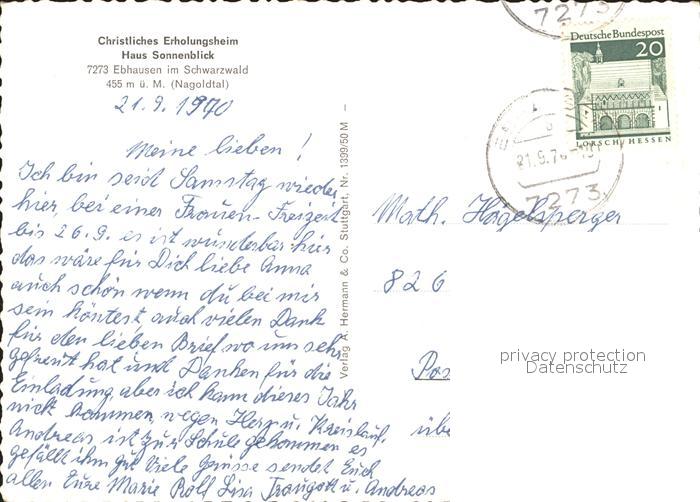 Christliches Erholungsheim
Haus Sonnenblick
7273 Ebhausen im Schwarzwald
455 m ü. M. (Nagoldtal)
21.9.1970
Meine lieben!
Ich bin seid Samstag wieder
hier, bei einer Frauen-Freizeit
bis 26.9. es ist wunderbar hier
das wäre für Dich liebe Anna
auch schön wenn du bei mir
sein köntest, auch vielen Dank
für den lieben Brief wo uns sehr
gefreut hat und Danken für die
Einladung, aber ich kann dieses Jahr
nicht kommen, wegen Herz u. Kreislauf,
Andreas ist zur Schule gekommen es
gefällt ihm gut Viele Grüsse sendet Euch
allen Eure Marie Rolf Lisa Traugott u. Andreas
Verlag A. Hermann & Co. Stuttgart, Nr. 1399/50 M
7273
Deutsche Bundespost
20
LORSCH/HESSEN
21.9.70
7273
Math. Hagelsperger
826
Pos
übe
privacy protection
Datenschutz